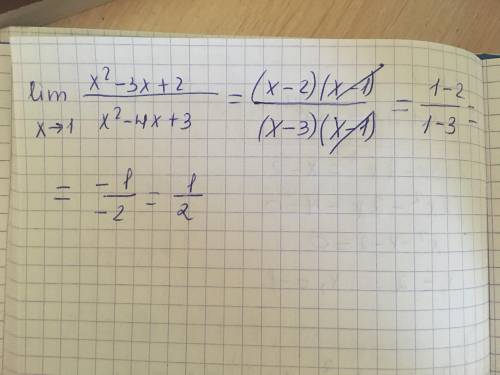 lim x→1 (x²-3x+2)/(x²-4x+3) = ((x-2)(x-1))/((x-3)(x-1)) = (1-2)/(1-3) =
= (-1)/(-2) = 1/2